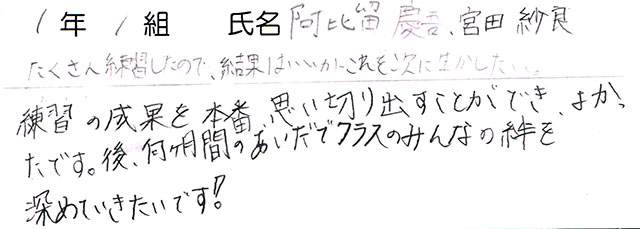 1年 1組 氏名 阿比留 慶吾、宮田 紗良
たくさん練習したので、結果はいいから、これを次に生かしたい。
練習の成果を本番、思い切り出すことができ、よかっ
たです。後、何ヶ月間のあいだでクラスのみんなの絆を
深めていきたいです!